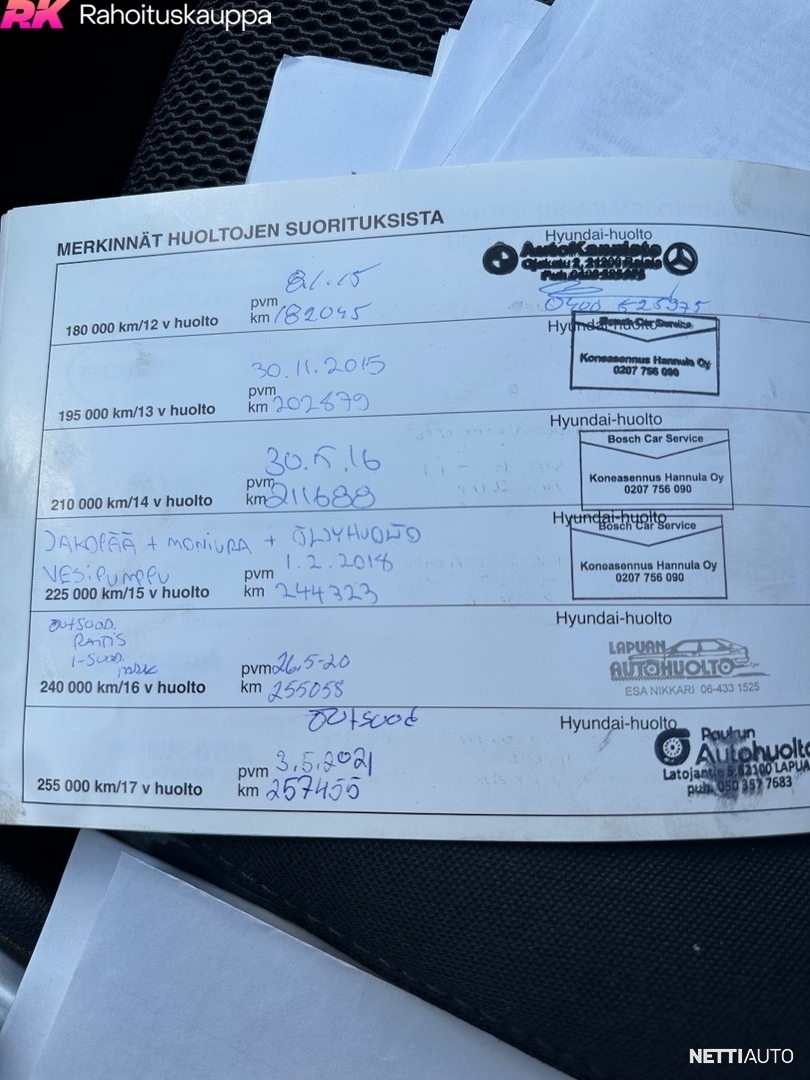 RK Rahoituskauppa
MERKINNÄT HUOLTOJEN SUORITUKSISTA
Hyundai-huolto
AutoKanniste
21200 Raisio
180 000 km/12 v huolto
pvm 8.1.15
km 182045
0400 525975
Hyundai-huolto
Bosch Car Service
Koneasennus Hannula Oy
0207 756 090
195 000 km/13 v huolto
pvm 30.11.2015
km 202879
Hyundai-huolto
Bosch Car Service
Koneasennus Hannula Oy
0207 756 090
210 000 km/14 v huolto
pvm 30.5.16
km 211688
Hyundai-huolto
Bosch Car Service
Koneasennus Hannula Oy
0207 756 090
JAKOPÄÄ + MONIURA + ÖLJYHUOLTO
VESIPUMPPU
225 000 km/15 v huolto
pvm 1.2.2018
km 244323
Hyundai-huolto
LAPUAN
AUTOHUOLTO
ESA NIKKARI 06-433 1525
ÖLJ+SUOD.
RAITIS
I-SUOD.
240 000 km/16 v huolto
pvm 26.5-20
km 255058
Hyundai-huolto
Paukun
Autohuolto
Latojantie 5, 62100 LAPUA
puh. 050 357 7683
ÖLJ+SUOD
255 000 km/17 v huolto
pvm 3.5.2021
km 257455
NETTIAUTO